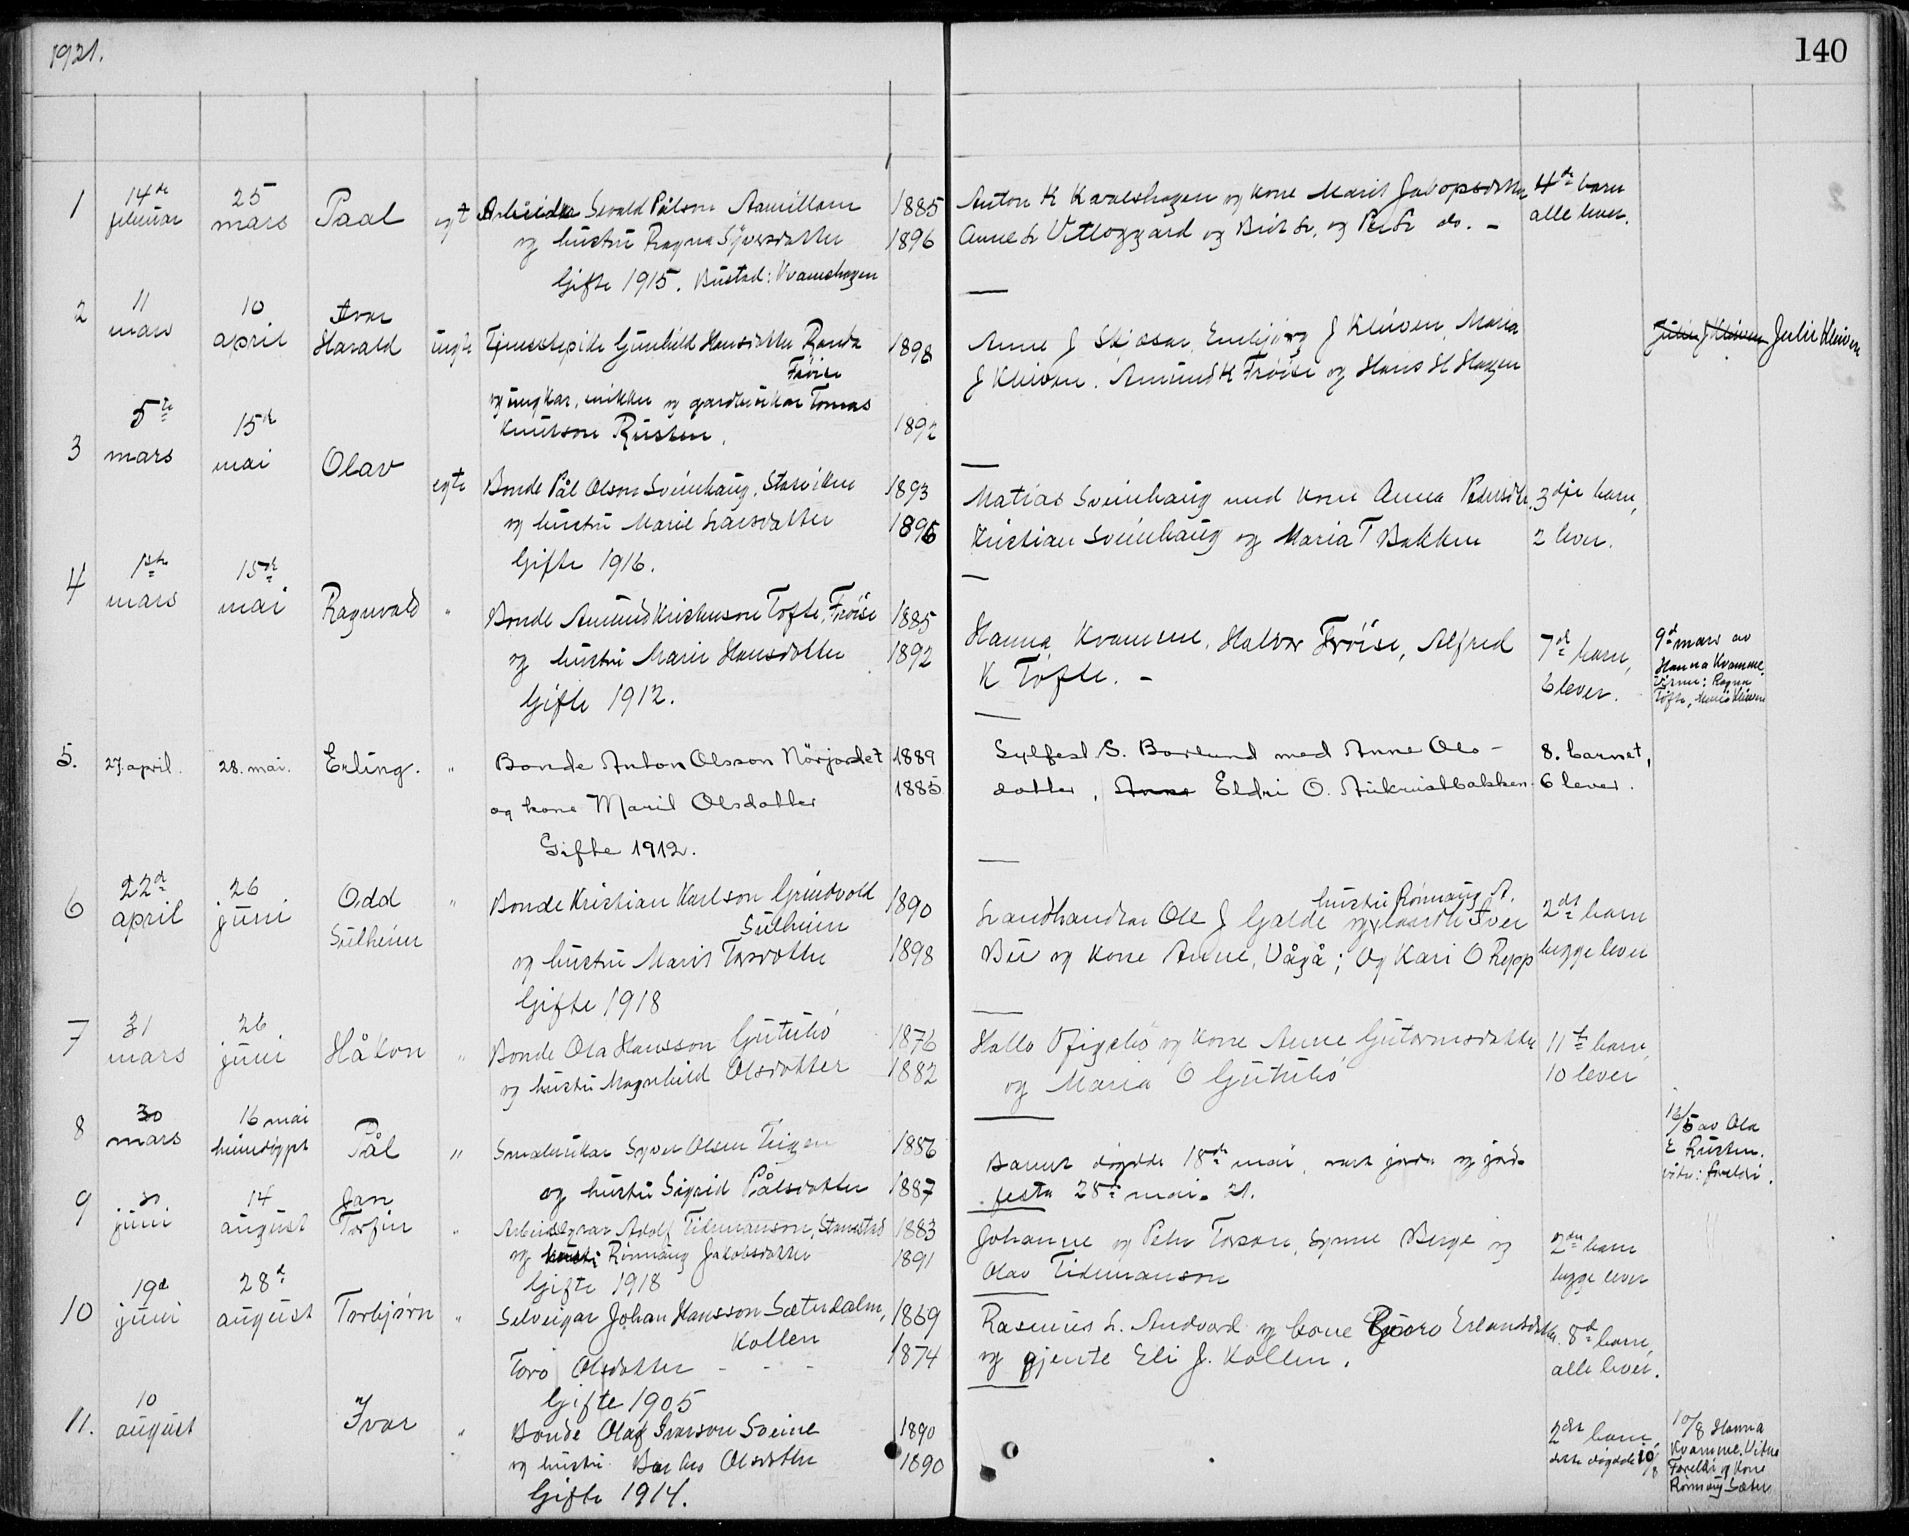 1921.
140
1 14de februar 25 mars Paal egt Arbeider Sevald Pålson Aamillom 1885 Anton K Kvaleshagen og kone Marit Jakopsdatter 4de barn
og hustru Ragna Syversdatter 1896 Anne S Utloggard og Brit S. og Per S. do. - alle lever.
Gifte 1915. Bustad: Kvamshagen
2 11 mars 10 april Ivar Harald uegte Tjenestepike Gunhild Hansdatter Randa 1898 Anne J Skjåsar, Embjørg J Kleiven, Maria Julie J Kleiven Julie Kleiven
Frøise J Kleiven. Amund K Frøise og Hans H Hagen
og ungkar, snikker og gardbrukar Tomas
Knutson Rusten. 1892
3 5te mars 15de mai Olav egte Bonde Pål Olson Sveinhaug, Storviken 1893 Matias Sveinhaug med kone Anna Pedersdtr. 3dje barn,
og hustru Marie Larsdatter 1896 Kristian Sveinhaug og Maria T Bakken 2 lever.
Gifte 1916.
4 1ste mars 15de mai Ragnvald " Bonde Amund Kristenson Tofte, Frøise 1885 Hanna Kvamme, Halvor Frøise, Alfred 7de barn, 9de mars av
og hustru Marie Hansdatter 1892 K Tofte. - 6 lever. Hanna Kvamme,
Gifte 1912. vitne: Ragna
Tofte, Marie Kleiven
5. 27. april. 28. mai. Erling. " Bonde Anton Olsson Nörjordet 1889 Sylfest S. Børlund med Anne Ols- 8. barnet,
og kone Marit Olsdatter 1885 datter, Anne Eldri O. Aukrustbakken. 6 lever.
Gifte 1912.
6 22de april 26 juni Odd Sulheim " Bonde Kristian Karlson Grindvold 1890 hustru Rønnaug A.
Sulheim Landhandlar Ole J Galde og Iver 2det barn
og hustru Marit Torsdatter 1898 Bu og kone Anne, Vågå; Og Kari O Repp begge lever
Gifte 1918
7 31 mars 26 juni Håkon " Bonde Ola Hansson Gutulió 1876 og kone Anne Gutormsdatter 11te barn,
og hustru Magnhild Olsdatter 1882 og Maria O Gutulió 10 lever
8 30 mars 16 mai heimedøypt Pål " Småbrukar Syver Olsen Teigen 1886 Barnet døydde 18de mai, vart jorda og jord- 16/5 av Ola
og hustru Sigrid Pålsdatter 1887 festa 28de mai. 21. E Rusten.
vitn: foreldri.
9 juni 14 august Jan Torfin " Arbeidsgvar Adolf Tidemanson, Stamstad 1883 Johanne og Peter Torson, Synne Berge og 2det barn
og hustru Rønnaug Jakobsdatter 1891 Olav Tidemanson begge lever
Gifte 1918
10 19de juni 28de august Torbjørn " Selveigar Johan Hansson Sæterdalen, 1869 Rasmus S. Andvord og kone Guro Erlandsdtr. 8de barn,
Kollen
Toro Olsdatter - - - 1874 og gjente Eli J. Kollen. alle lever.
Gifte 1905
11. 10 august Ivar " Bonde Olaf Ivarson Sveine 1890 2det barn, 10/8 Hanna
og hustru Olsdatter 1890 dette døydde 10/8 Kvamme. Vitne
Gifte 1914. Foreldri og kone
Rønnaug Sæter